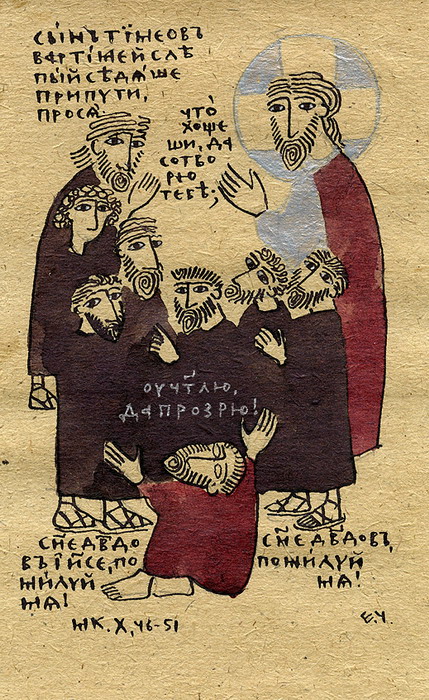 СЫНЪ ТІМЕОВЪ
ВАРТІМЕЙ СЛѢ
ПЫЙ СѢДѦШЕ
ПРИ ПУТИ,
ПРОСѦ.
ЧТО
ХОЩЕ
ШИ, ДА
СОТВО
РЮ
ТЕБѢ,
ОУЧТЛЮ,
ДА ПРОЗРЮ!
СН҃Е ДВ҃ДО
ВЪ ІИ҃СЕ, ПО
МИЛУЙ
МѦ!
СН҃Е ДВ҃ДОВЪ,
ПОМИЛУЙ
МѦ!
МК. X, 46-51
Е.Ч.